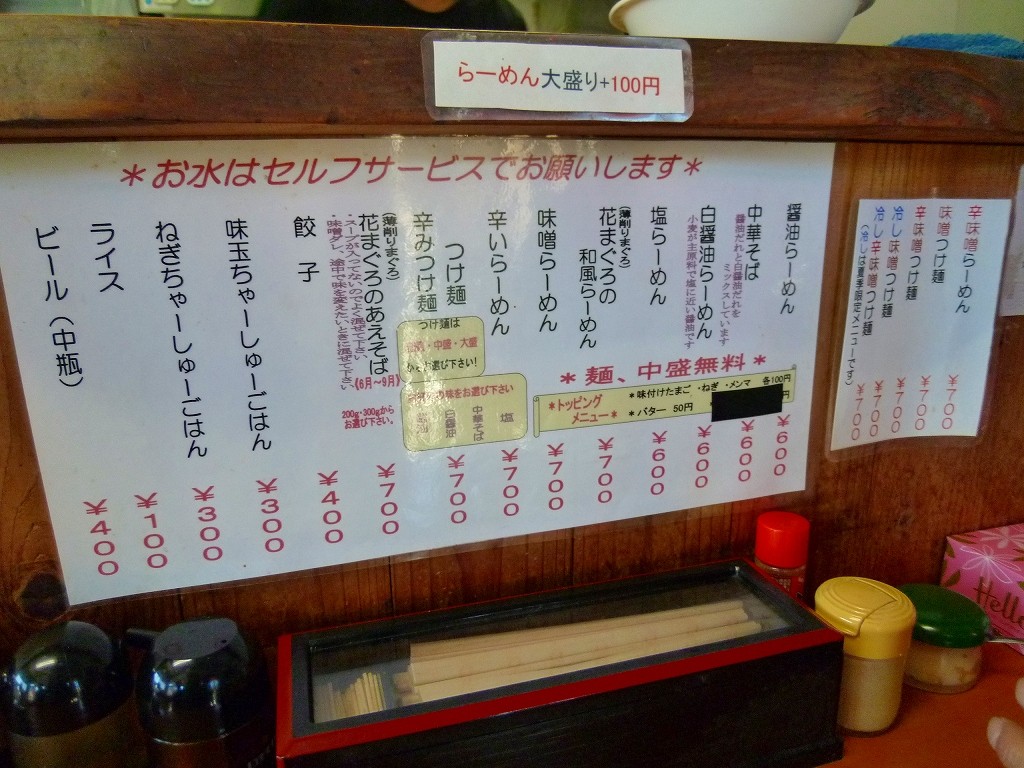 らーめん大盛り+100円
＊お水はセルフサービスでお願いします＊
醤油らーめん
￥600
中華そば
醤油だれと白醤油だれを
ミックスしています
￥600
白醤油らーめん
小麦が主原料で塩に近い醤油です
￥600
塩らーめん
￥600
(薄削りまぐろ)
花まぐろの
和風らーめん
￥700
味噌らーめん
￥700
辛いらーめん
￥700
つけ麺
辛みつけ麺
￥700
つけ麺は
・中盛・大盛
お選び下さい!
の味をお選び下さい
塩
中華そば
白醤油
醤油
(薄削りまぐろ)
花まぐろのあえそば
(6月～9月)
・スープが入ってないのでよく混ぜて下さい。
・味噌ダレ、途中で味を変えたいときに混ぜて下さい。
200g・300gから
お選び下さい。
￥700
餃子
￥400
味玉ちゃーしゅーごはん
￥300
ねぎちゃーしゅーごはん
￥300
ライス
￥100
ビール(中瓶)
￥400
＊麺、中盛無料＊
＊トッピング
メニュー＊
＊味付けたまご・ねぎ・メンマ 各100円
＊バター 50円
円
辛味噌らーめん
￥700
味噌つけ麺
￥700
辛味噌つけ麺
￥700
冷し味噌つけ麺
￥700
冷し辛味噌つけ麺
￥700
(冷しは夏季限定メニューです)
Hello